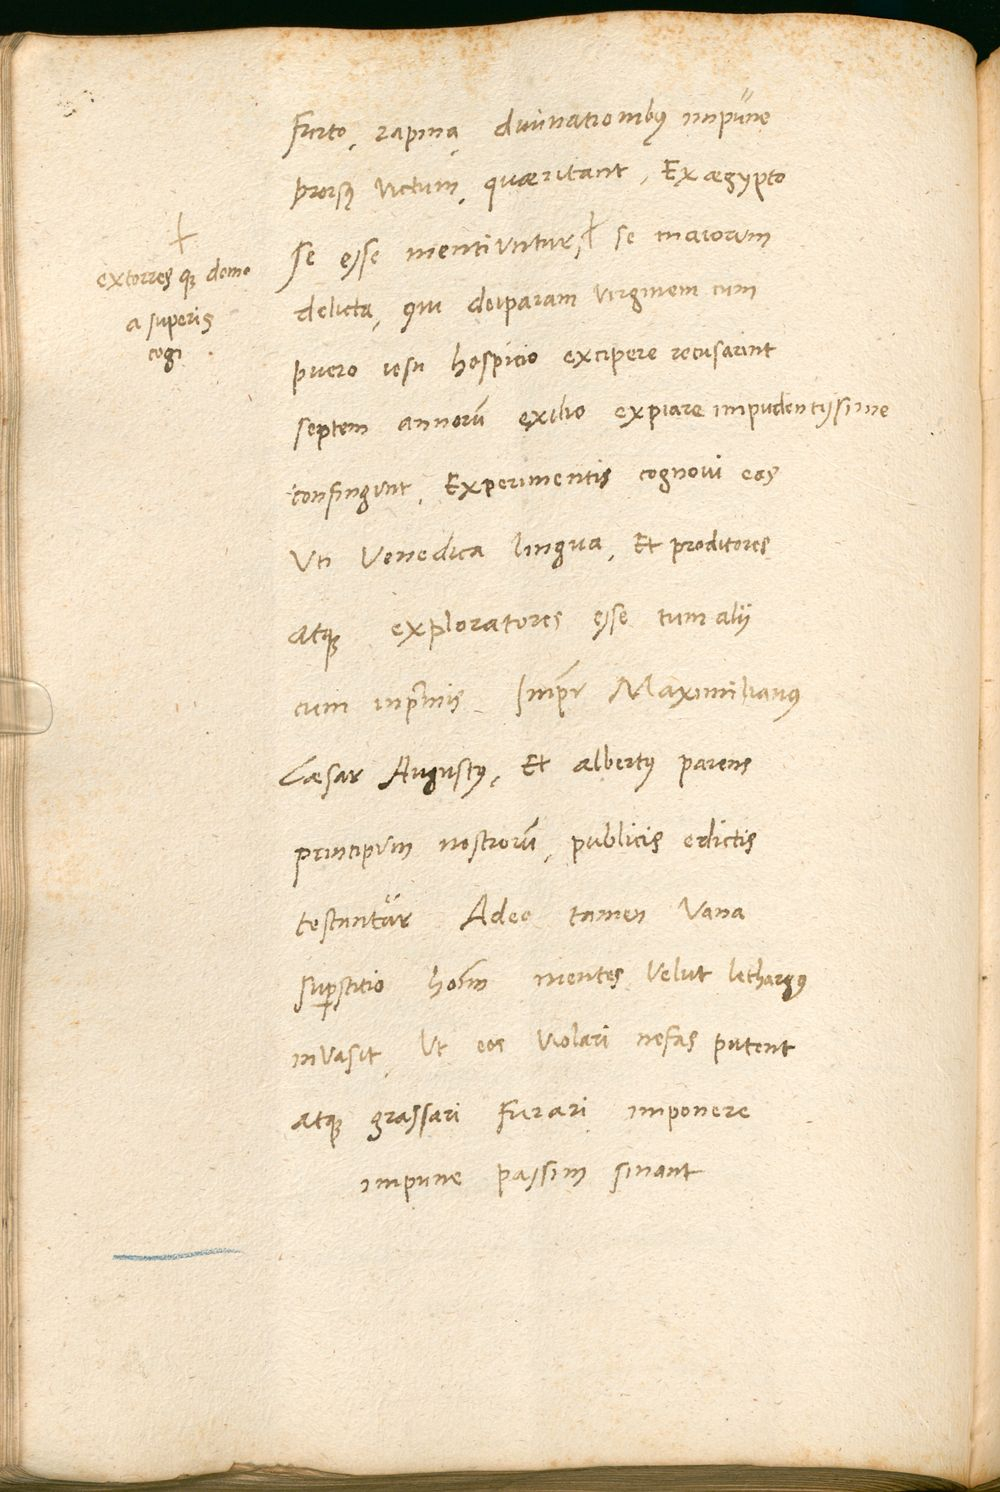 furto, rapina, diuinationibꝰ impune
prorsꝰ victum, quæritant, Ex ægypto
se esse mentiuntur, ł se maiorum
extorres qꝫ domo
a superis
cogi.
delicta, qui deiparam virginem cum
puero iesu hospicio excipere recusarint
septem annorū exilio expiare impudentissime
confingunt, Experimentis cognoui eos
Vti Venedica lingua, Et proditores
atqꝫ exploratores esse tum alij
cum inp̄mis Imp̄r Maximilianꝰ
Cæsar Augustꝰ, Et albertꝰ parens
principum nostrorū, publicis edictis
testantur Adeo tamen Vana
suꝑstitio hoīm mentes Velut lethargꝰ
inVasit, Vt eos Violari nefas putent
atqꝫ grassari furari imponere
impune passim sinant